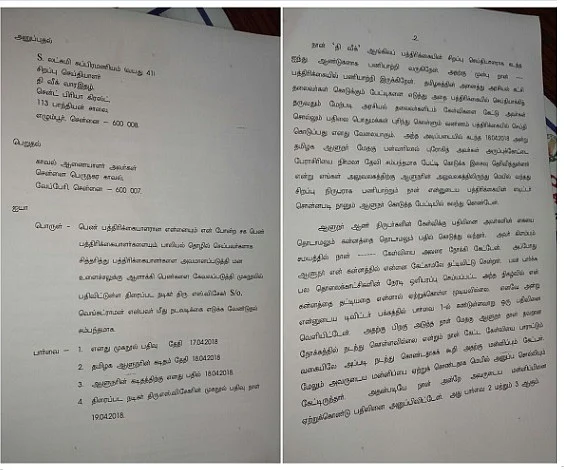 அனுப்புதல்
S. லட்சுமி சுப்பிரமணியம் (வயது 41)
சிறப்பு செய்தியாளர்
தி வீக் வாரஇதழ்,
சென்ட் பிரியா கிரஸ்ட்,
113 பாந்தியன் சாலை,
எழும்பூர், சென்னை – 600 008.
பெறுதல்
காவல் ஆணையாளர் அவர்கள்
சென்னை பெருநகர காவல்,
வேப்பேரி, சென்னை – 600 007.
ஐயா
பொருள் - பெண் பத்திரிக்கையாளரான என்னையும் என் போன்ற சக பெண்
பத்திரிக்கையாளர்களையும் பாலியல் தொழில் செய்பவர்களாக
சித்தரித்து பத்திரிக்கையாளர்களை அவமானப்படுத்தி மன
உளைச்சலுக்கு ஆளாக்கி பெண்களை கேவலப்படுத்தி முகநூலில்
பதிவிட்டுள்ள திரைப்பட நடிகர் திரு.எஸ்.வி.சேகர் S/o,
வெங்கட்ராமன் என்பவர் மீது நடவடிக்கை எடுக்க வேண்டுதல்
சம்பந்தமாக.
பார்வை - 1. எனது முகநூல் பதிவு தேதி 17.04.2018
2. தமிழக ஆளுநரின் கடிதம் தேதி 18.04.2018
3. ஆளுநரின் கடிதத்திற்கு எனது பதில் 18.04.2018
4. திரைப்பட நடிகர் திரு.எஸ்.வி.சேகரின் முகநூல் பதிவு நாள்
19.04.2018.
-2-
நான் 'தி வீக்' ஆங்கிலப் பத்திரிக்கையின் சிறப்பு செய்தியாளராக கடந்த
ஐந்து ஆண்டுகளாக பணியாற்றி வருகிறேன். அதற்கு முன்பு நான் ---
பத்திரிக்கையில் பணியாற்றி இருக்கிறேன். தமிழகத்தின் அனைத்து அரசியல் கட்சி
தலைவர்கள் கொடுக்கும் பேட்டிகளை எடுத்து அதை பத்திரிக்கையில் செய்தியாக்கி
தருவதும் மேற்படி அரசியல் தலைவர்களிடம் கேள்விகளை கேட்டு அவர்கள்
சொல்லும் பதிலை பொதுமக்கள் புரிந்து கொள்ளும் வண்ணம் பத்திரிக்கையில் செய்தி
கொடுப்பது எனது வேலையாகும். அந்த அடிப்படையில் கடந்த 18.04.2018 அன்று
தமிழக ஆளுநர் மேதகு பன்வாரிலால் புரோகித் அவர்கள் அருப்புக்கோட்டை
பேராசிரியை நிர்மலா தேவி சம்பந்தமாக பேட்டி கொடுக்க இசைவு தெரிவித்துள்ளார்
என்று எங்கள் அலுவலகத்திற்கு ஆளுநரின் அலுவலகத்திலிருந்து மெயில் வந்தது.
சிறப்பு நிருபராக பணியாற்றும் நான் என்னுடைய பத்திரிக்கையின் எடிட்டர்
சொன்னபடி நானும் ஆளுநர் கொடுத்த பேட்டியில் கலந்து கொண்டேன்.
ஆளுநர் அவர் நிருபர்களின் கேள்விக்கு பதிலினை அவர்களின் கையை
தொடாமலும் கன்னத்தை தொடாமலும் பதில் கொடுத்து வந்தார். அவர் கிளம்பும்
சமயத்தில் நான் ------- கேள்வியை அவரை நோக்கி கேட்டேன். அப்போது
ஆளுநர் என் கன்னத்தில் என்னை கேட்காமலே தட்டிவிட்டு சென்றார். பலர் பார்க்க
பல தொலைக்காட்சிகளின் நேரடி ஒளிபரப்பு செய்யப்பட்ட அந்த நிகழ்வில் என்
கன்னத்தை தட்டியதை என்னால் ஏற்றுக்கொள்ள முடியவில்லை. எனவே அன்று
என்னுடைய டிவிட்டர் பக்கத்தில் பார்வை 1-ல் கண்டுள்ளவாறு ஒரு பதிவினை
வெளியிட்டேன். அதற்கு பிறகு அடுத்த நாள் மேதகு ஆளுநர் தான் தவறான
நோக்கத்தில் நடந்து கொள்ளவில்லை என்றும் நான் கேட்ட கேள்வியை பாராட்டும்
வகையிலே அப்படி நடந்து கொண்டதாகக் கூறி அதற்கு மன்னிப்பும் கேட்டார்.
மேலும் அவருடைய மன்னிப்பை ஏற்று கொண்டதாக மெயில் அனுப்ப சொல்லியும்
கேட்டிருந்தார். அதன்படியே நான் அன்றே அவருடைய மன்னிப்பினை
ஏற்றுக்கொண்டு பதிலினை அனுப்பிவிட்டேன். அது பார்வை 2 மற்றும் 3 ஆகும்.